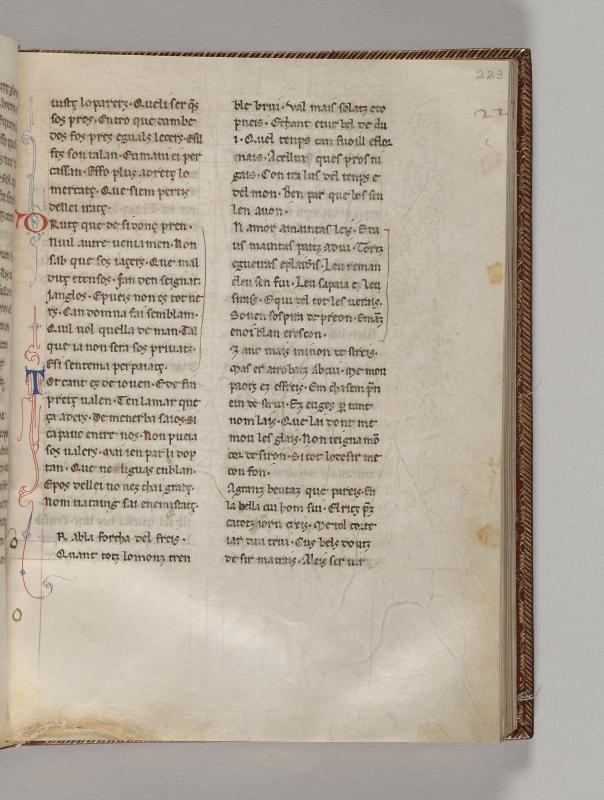 223
22
iustz lo parers. Queli ser q̄s
sos pres. Entro que tambe
dos sos pres eguals leters. Esil
fis son talan. Eumani ei per
cassan. Esso plus adretz lo
mercatz. Que siem peritz
dellei iratz.
Rutz que de si donç pren.
Nuil autre uenia men. Non
sab que ses iaçers. Que mal
ditz etensos. Ian den seignat.
Janglos. Epueis non es tot ne
rs. Can domna fai semblam.
Quil uol quella deman. Tal
que ia non sera sos priuatz.
Esi sentema per paiatç.
Tot cant es de iouen. Ede fin
pretz ualen. Ten lamar que
ça aders. De mener ba saios. Si
capauc entre nos. Non pueia
sos ualers. Mai ien par li dop
tan. Que ne liguas enblan.
Epos dellei no nez chai gratz.
Nom uataing fai enemistatz.
R abla forcha del freis.
Quant totz lo monz tren
ble brui. Val mais solatz eto
pneis. Echant etut bel de du
i. Quel temps can fuoill eflor
nais. Acellui ques pros ni
gais. Con tra lus del temps e
del mon. Ben par que bos sen
len auon.
N amor amaintas leis. Eta
us maintas partz adui. Tortz
egueiras eplaidis. Leu reman
eleu sen fui. Leu sapaia e leu
sirais. Equi tol tot les uerais.
Souen sospira de preon. Emātz
enoi blan erescon.
E anc mais mi non destreis.
Mas er atrobatz abcui. Me mon
paors ez esfreis. Em chasem p̄n
ein destrui. Ez enges p̱ tant
nom lais. Que lai dont me
mou les glais. Non teigna mō
cor desiron. Si tot loc estir me
con fon.
A granz beutaz que pareis. En
la bella cui hom sui. El ricz p̄z
catotz iorn creis. Metol toutz
iar dautrui. Cus bels doutz
desir matrais. Aleis ser uir